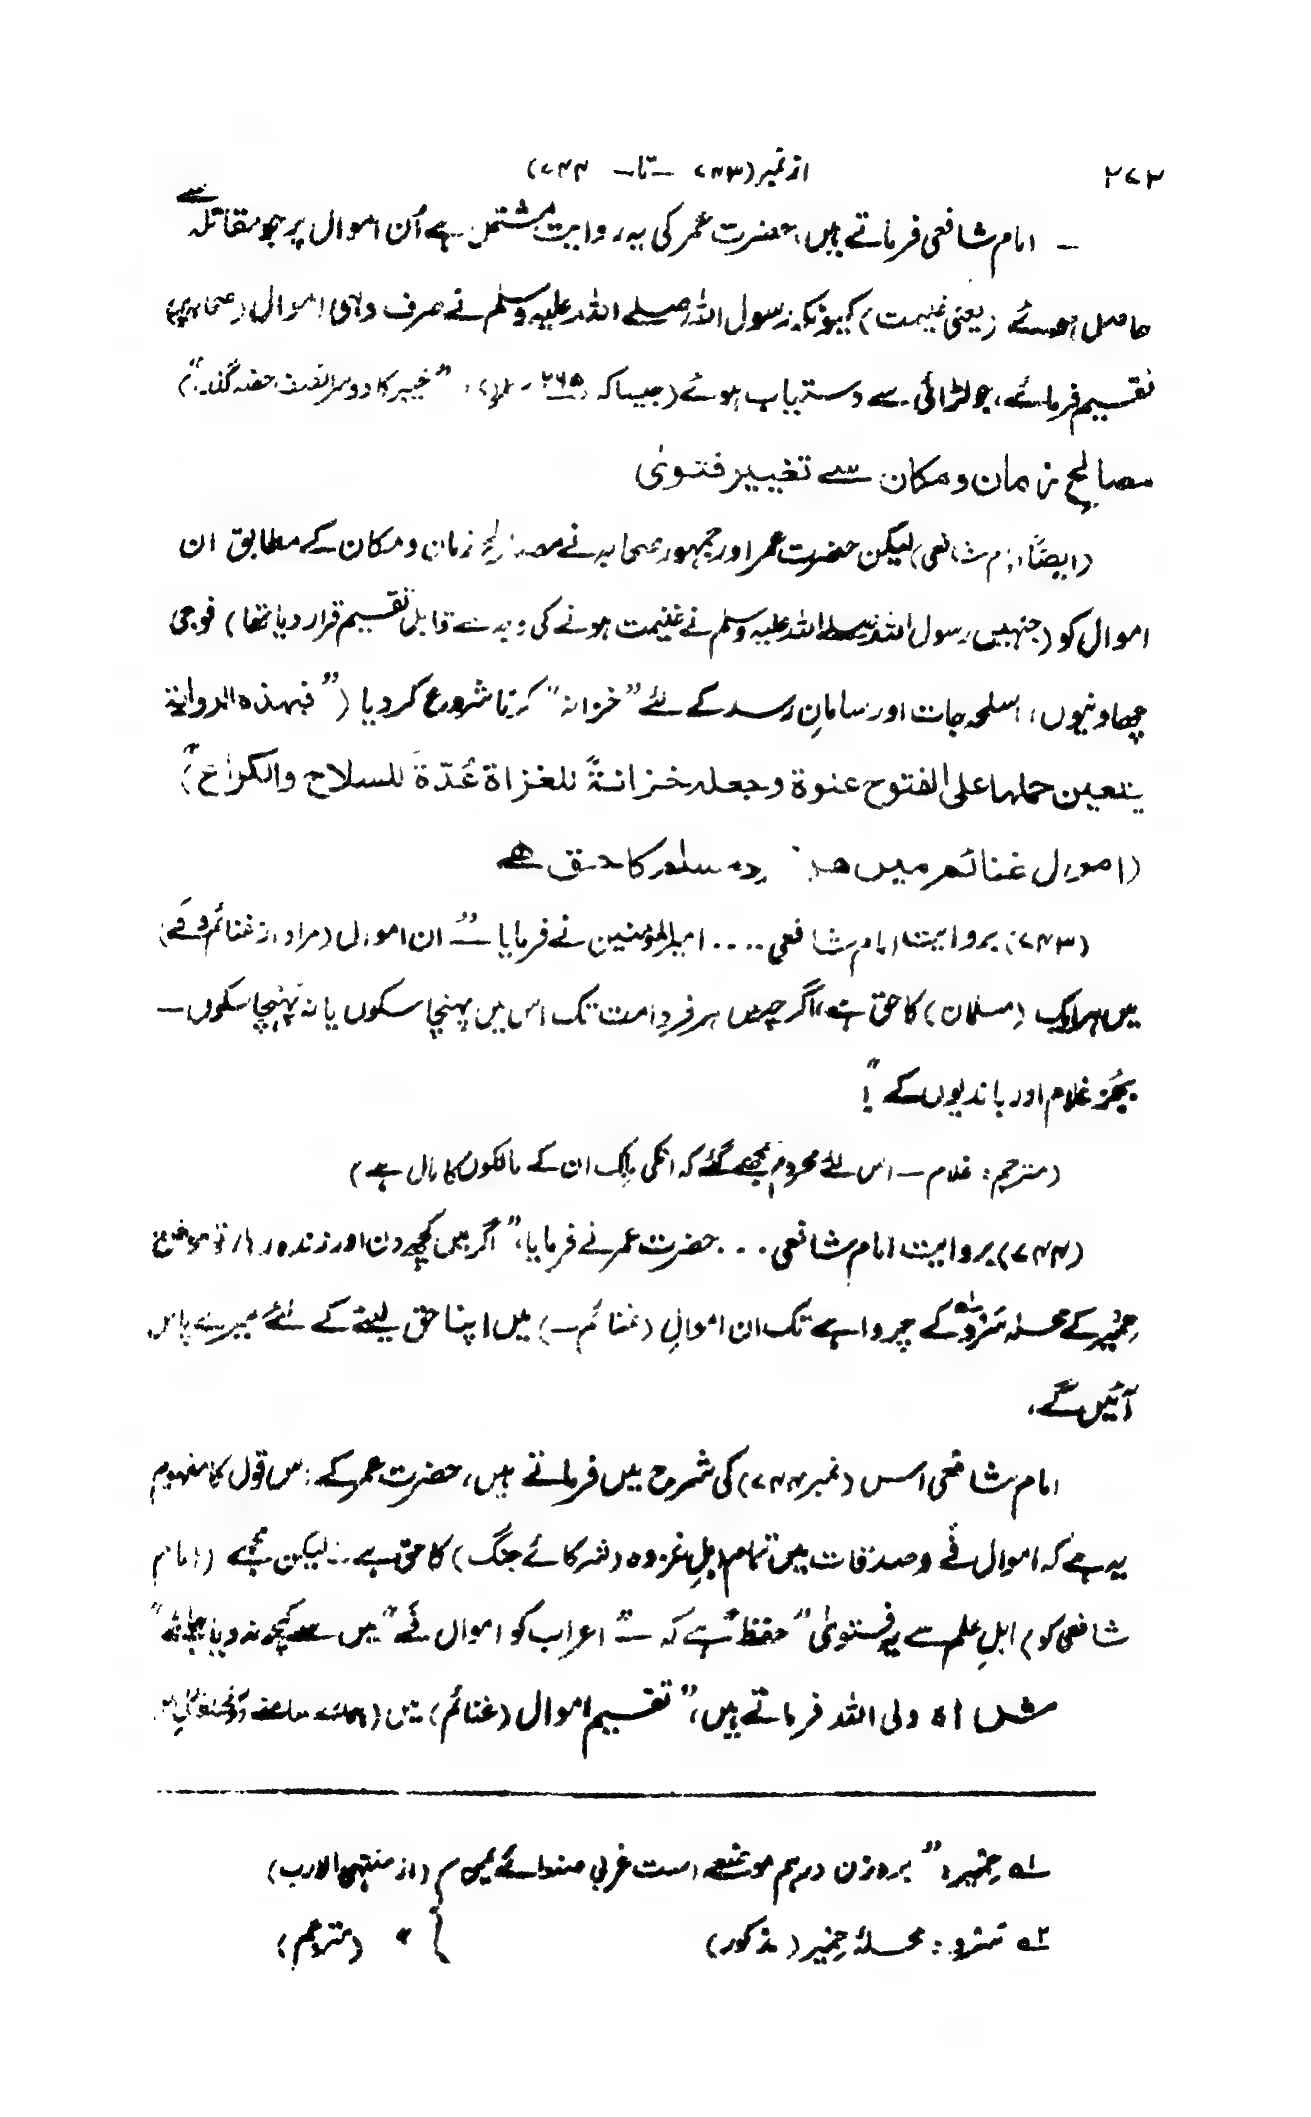 ۲۷۲ از نمبر (۷۴۳ – تا – ۷۴۴)
– امام شافعی فرماتے ہیں، حضرت عمر کی یہ روایت مشتمل ہے اُن اموال پر جو مقاتلہ سے
حاصل ہوئے (یعنی غنیمت) کیونکہ رسول اللہ صلے اللہ علیہ وسلم نے صرف وہی اموال (صحابہ پر)
تقسیم فرمائے، جو لڑائی سے دستیاب ہوئے (جیسا کہ ۲۶۵ "خیبر کا دوسرا نصف حصہ گذرا")
مصالح زمان و مکان سے تغییر فتویٰ
(ایضًا امام شافعی) لیکن حضرت عمر اور جمہور صحابہ نے مصالح زمان و مکان کے مطابق ان
اموال کو (جنہیں رسول اللہ صلے اللہ علیہ وسلم نے غنیمت ہونے کی وجہ سے قابل تقسیم قرار دیا تھا) فوجی
چھاونیوں، اسلحہ جات اور سامانِ رسد کے لئے "خزانہ" کرنا شروع کر دیا ("فہذہ الروایۃ
یتعین حملہا علی الفتوح عنوۃ وجعلہ خزانۃً للغزاۃ عُدّۃً للسلاح والکراع")
(اموال غنائم میں ہر مسلم کا حق ہے
(۷۴۳) بروایت امام شافعی .... امیر المؤمنین نے فرمایا – "ان اموال (مراد از غنائم و فَے)
میں ہر ایک (مسلمان) کا حق ہے، اگر چہ میں ہر فرد امت تک اس میں پہنچا سکوں یا نہ پہنچا سکوں –
بجُز غلام اور باندیوں کے"!
(مترجم: غلام – اس لئے محروم سمجھے گئے کہ انکی مِلک ان کے مالکوں کا مال ہے)
(۷۴۴) بروایت امام شافعی ... حضرت عمر نے فرمایا، "اگر میں کچھ دن اور زندہ رہا، تو موضع
حِمْیَر کے محلہ سَرْو کے چرواہے تک ان اموالِ (غنائم –) میں اپنا حق لینے کے لئے میرے پاس
آئیں گے،
امام شافعی اس (نمبر ۷۴۴) کی شرح میں فرماتے ہیں، حضرت عمر کے اس قول کا مفہوم
یہ ہے کہ اموال فَے و صدقات میں تمام اہلِ غزوہ (شرکائے جنگ) کا حق ہے .. لیکن مجھے (امام
شافعی کو) اہلِ علم سے یہ فتویٰ "حفظ" ہے کہ – "اعراب کو اموال فَے" میں سے کچھ نہ دیا جائے"
شاہ ولی اللہ فرماتے ہیں، "تقسیم اموال (غنائم) میں (ہمارے سامنے
۱ حِمْیَر: "بروزن درہم موضعے است غربی صنعائے یمن (از منتہی الارب)
۲ سَرْو: محلۂ حِمْیَر (مذکور) } " (مترجم)